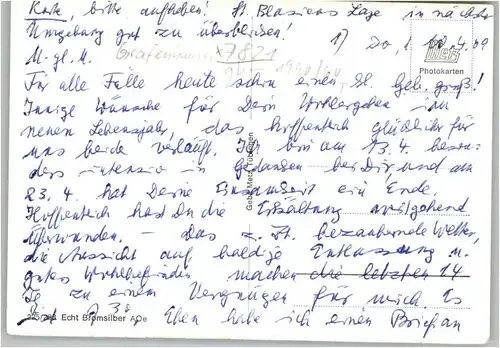 Karte, bitte aufheben! St. Blasiens Lage in nächster
Umgebung gut zu überblicken! 1) Do, 1. 4. 09
M. gl. M. Grafenhausen 7821
Metz
Photokarten
Für alle Fälle heute schon einen hl. Geb. gruß!
Innige Wünsche für Dein Wohlergehen im
neuen Lebensjahr, das hoffentlich glücklich für
uns beide verläuft. Ich bin am 13. 4. beson-
ders intensiv in Gedanken bei Dir und am
23. 4. hat Deine Einsamkeit ein Ende.
Hoffentlich hast Du die Erkältung weitgehend
überwunden. – Das z. Zt. bezaubernde Wetter,
die Aussicht auf baldige Entlassung u.
gutes Wohlbefinden machen die letzten 14
Tg zu einem Vergnügen für mich. Es
ist 30, Eben habe ich einen Brief an
Gebr. Metz Tübingen
Echt Bromsilber